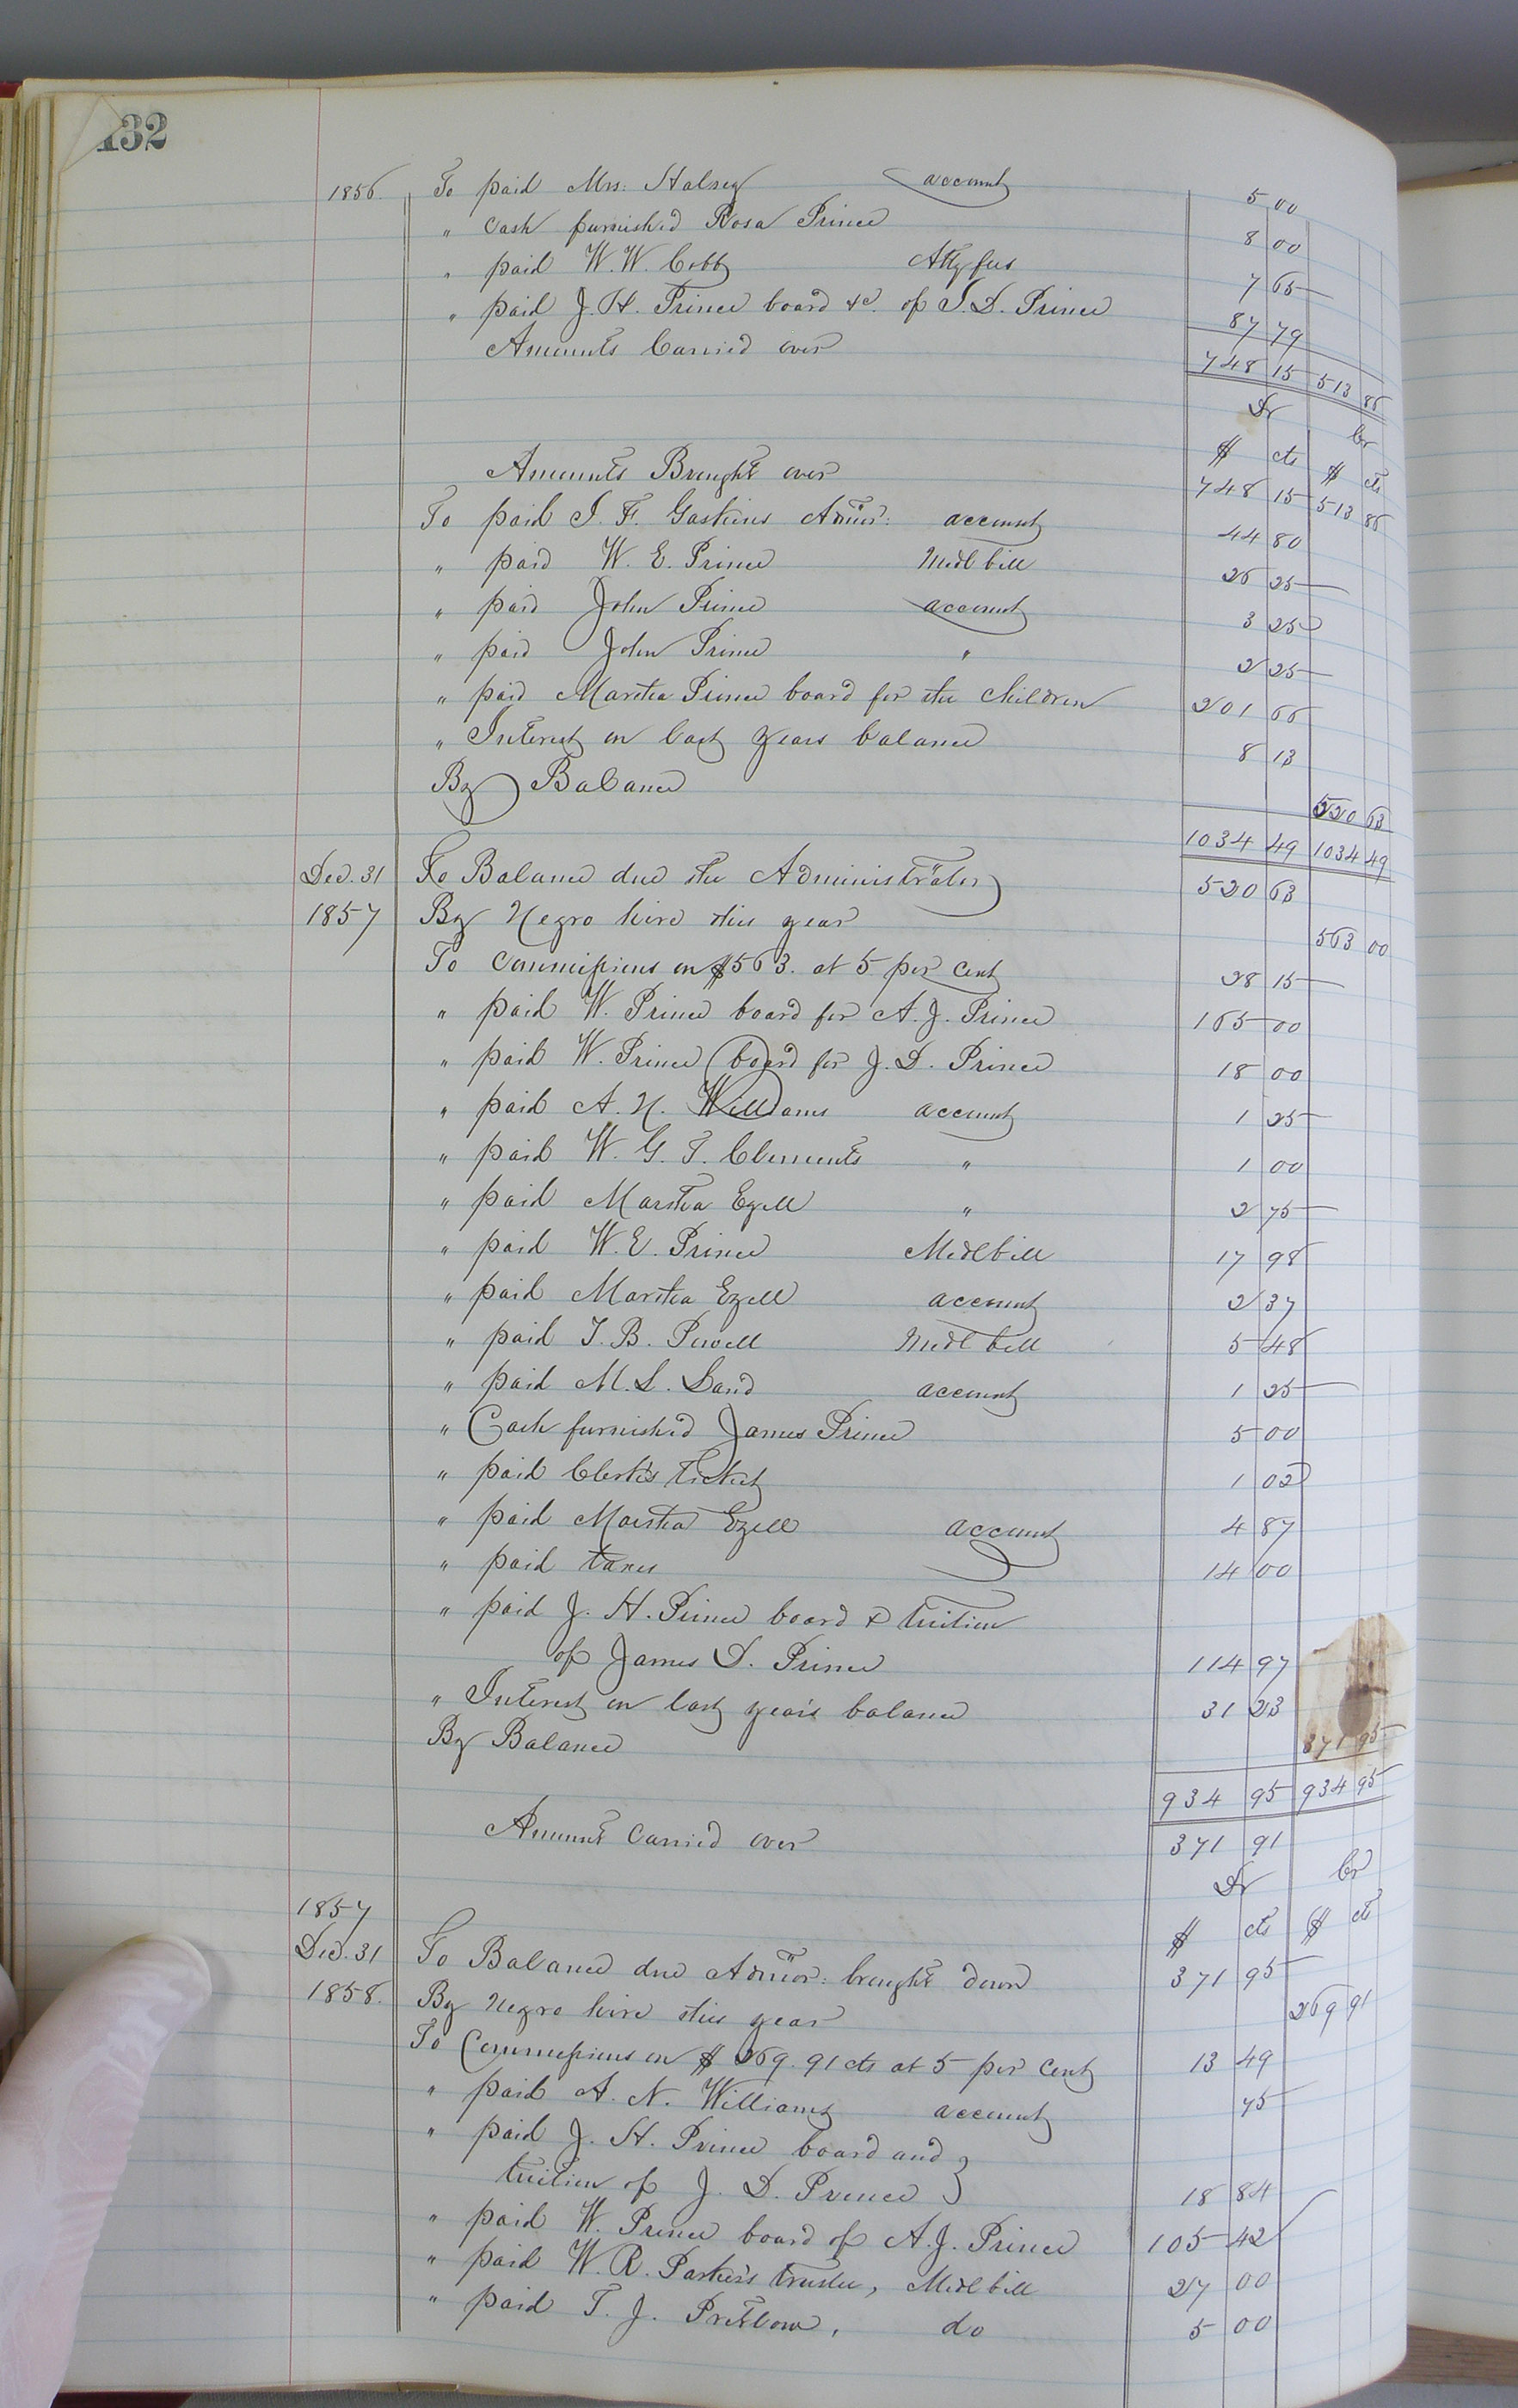 132
1856. To paid Mrs. Halsey account 5 00
" Cash furnished Rosa Prince 8 00
" paid W. W. Cobb Atty fees 7 65
" paid J. H. Prince board &c. of J. D. Prince 87 79
Amounts Carried over 748 15 513 86
Dr Cr
$ cts $ cts
Amounts Brought over 748 15 513 86
To paid J. F. Gaskins Admor: account 44 80
" paid W. E. Prince Medl bill 26 25
" paid John Prince account 3 25
" paid John Prince " 2 25
" paid Martha Prince board for the Children 201 66
" Interest on last years balance 8 13
By Balance 520 63
1034 49 1034 49
Dec. 31 To Balance due the Administrator 520 63
1857 By Negro hire this year 563 00
To commissions on $563. at 5 per cent 28 15
" paid W. Prince board for A. J. Prince 165 00
" paid W. Prince board for J. D. Prince 18 00
" paid A. N. Williams account 1 25
" paid W. G. T. Clements " 1 00
" paid Martha Ezell " 2 75
" paid W. E. Prince Medl bill 17 98
" paid Martha Ezell account 2 37
" paid T. B. Powell Medl bill 5 48
" paid M. L. Land account 1 25
" Cash furnished James Prince 5 00
" paid Clerk's ticket 1 02
" paid Martha Ezell account 4 87
" paid taxes 14 00
" paid J. H. Prince board & tuition
of James D. Prince 114 97
" Interest on last year's balance 31 23
By Balance 371 95
934 95 934 95
Amount Carried over 371 91
Dr Cr
1857 $ cts $ cts
Dec. 31 To Balance due Admor: brought down 371 95
1858. By Negro hire this year 269 91
To Commissions on $269.91 cts at 5 per cent 13 49
" paid A. N. Williams account 75
" paid J. H. Prince board and }
tuition of J. D. Prince } 18 84
" paid W. Prince board of A. J. Prince 105 42
" paid W. R. Parker's trustee, Medl bill 27 00
" paid T. J. Pretlow, do 5 00